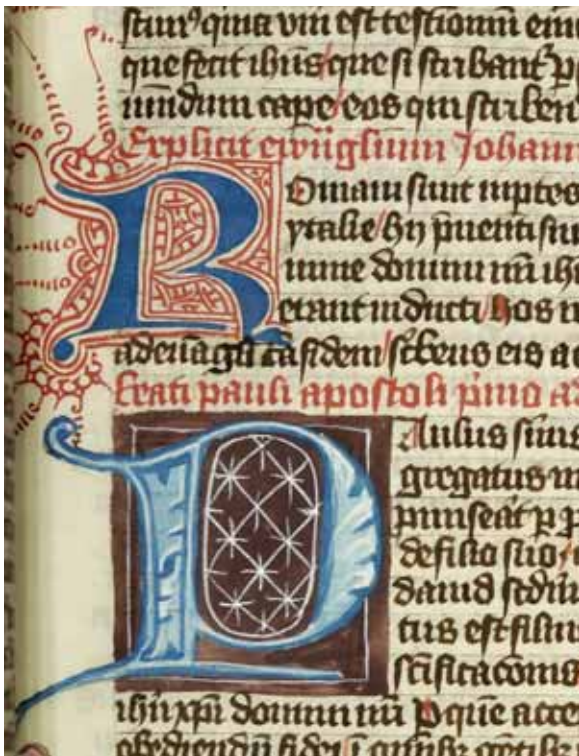 scimꝰ quia vm̄ est testioniū eiu
que fecit ihūs que si scribant᷑ p
mundum cape eos qui scriben
Explicit ewāglium Johann
ROmani sunt in p̄tes
ytalie hij p̄uenti sun
nomine domini nr̄i ihe
erant inducti hos
ad euāglicā fidem sc̄bens eis a
beati pauli apostoli p̄mo
PAulus
gregatus in
pmiserat p p
de filio suo
dauid scd̄m
tus est filiu
sc̄ificacōnis
ihū xp̄i domini nr̄i p quē acce
obediendū fidei ī